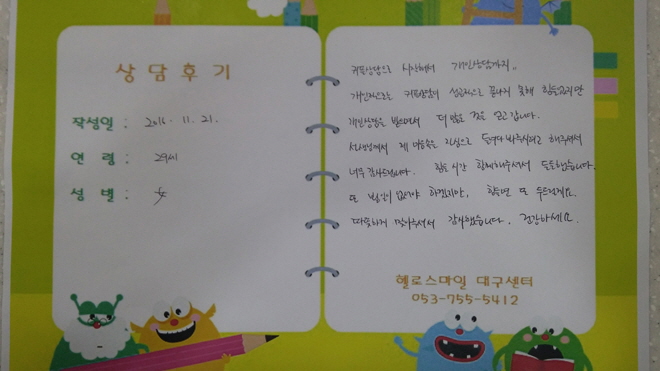 상담후기
작성일 : 2016. 11. 21.
연 령 : 29세
성 별 : 女
커플상담으로 시작해서 개인상담까지..
개인적으로는 커플상담이 성공적으로 끝나지 못해 힘들었지만
개인상담을 받으면서 더 많은 것을 얻고 갑니다.
선생님께서 제 마음을 진심으로 들여다 봐주시려고 해주셔서
너무 감사드립니다. 힘든 시간 함께해주셔서 든든했습니다.
또 볼일이 없어야 하겠지만, 힘들면 또 두드릴게요.
따뜻하게 맞아주셔서 감사했습니다. 건강하세요.
헬로스마일 대구센터
053-755-5412